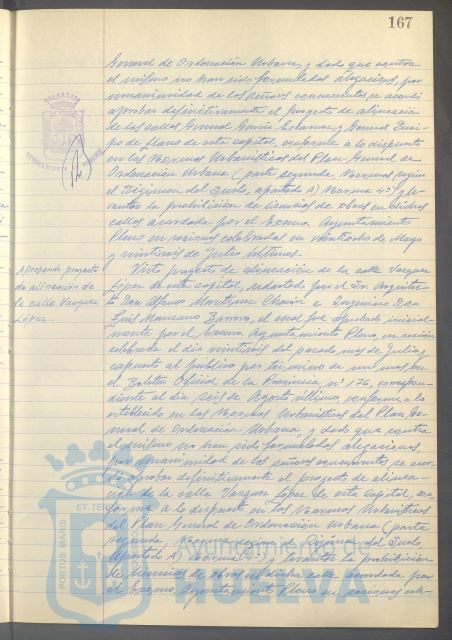 167
General de Ordenación Urbana, y dado que contra
el mismo no han sido formuladas alegaciones, por
unanimidad de los señores concurrentes se acordó
aprobar definitivamente el proyecto de alineación
de las calles General García Escámez y General Quei-
po de Llano de esta capital, conforme a lo dispuesto
en las Normas Urbanísticas del Plan General de
Ordenación Urbana (parte segunda, Normas según
el Régimen del Suelo, apartado A) Norma 4ª) y le-
vantar la prohibición de licencias de obras en dichas
calles acordada por el Excmo. Ayuntamiento
Pleno en sesiones celebradas en veintiocho de Mayo
y veintiseis de Julio últimos.-
Aprobando proyecto
de alineación de
la calle Vazquez
López.-
Visto proyecto de alineación de la calle Vazquez
López de esta capital, redactado por el Sr. Arquitec-
to Don Alfonso Martinez Chacón e Ingeniero Don
Luis Manzano, el cual fue aprobado inicial-
mente por el Excmo. Ayuntamiento Pleno, en sesión
celebrada el día veintiseis del pasado mes de Julio, y
expuesto al público por término de un mes, en
el Boletín Oficial de la Provincia nº 176, correspon-
diente al día seis de Agosto último, conforme a lo
establecido en las Normas Urbanísticas del Plan Ge-
neral de Ordenación Urbana, y dado que contra
el mismo no han sido formuladas alegaciones,
por unanimidad de los señores concurrentes se acor-
dó aprobar definitivamente el proyecto de alinea-
ción de la calle Vazquez López de esta capital, con-
forme a lo dispuesto en las Normas Urbanísticas
del Plan General de Ordenación Urbana (parte
segunda, Normas según el Régimen del Suelo,
apartado A) Norma 4ª) y levantar la prohibición
de licencias de obras en dicha calle acordada por
el Excmo. Ayuntamiento Pleno en sesiones cele-
PORTUS MARIS
ET TERR
Ayuntamiento de
HUELVA